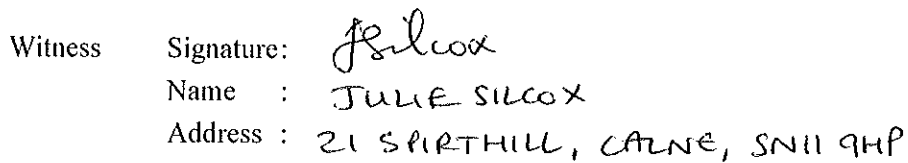 Witness Signature: JSilcox
Name : JULIE SILCOX
Address : 21 SPIRTHILL, CALNE, SN11 9HP